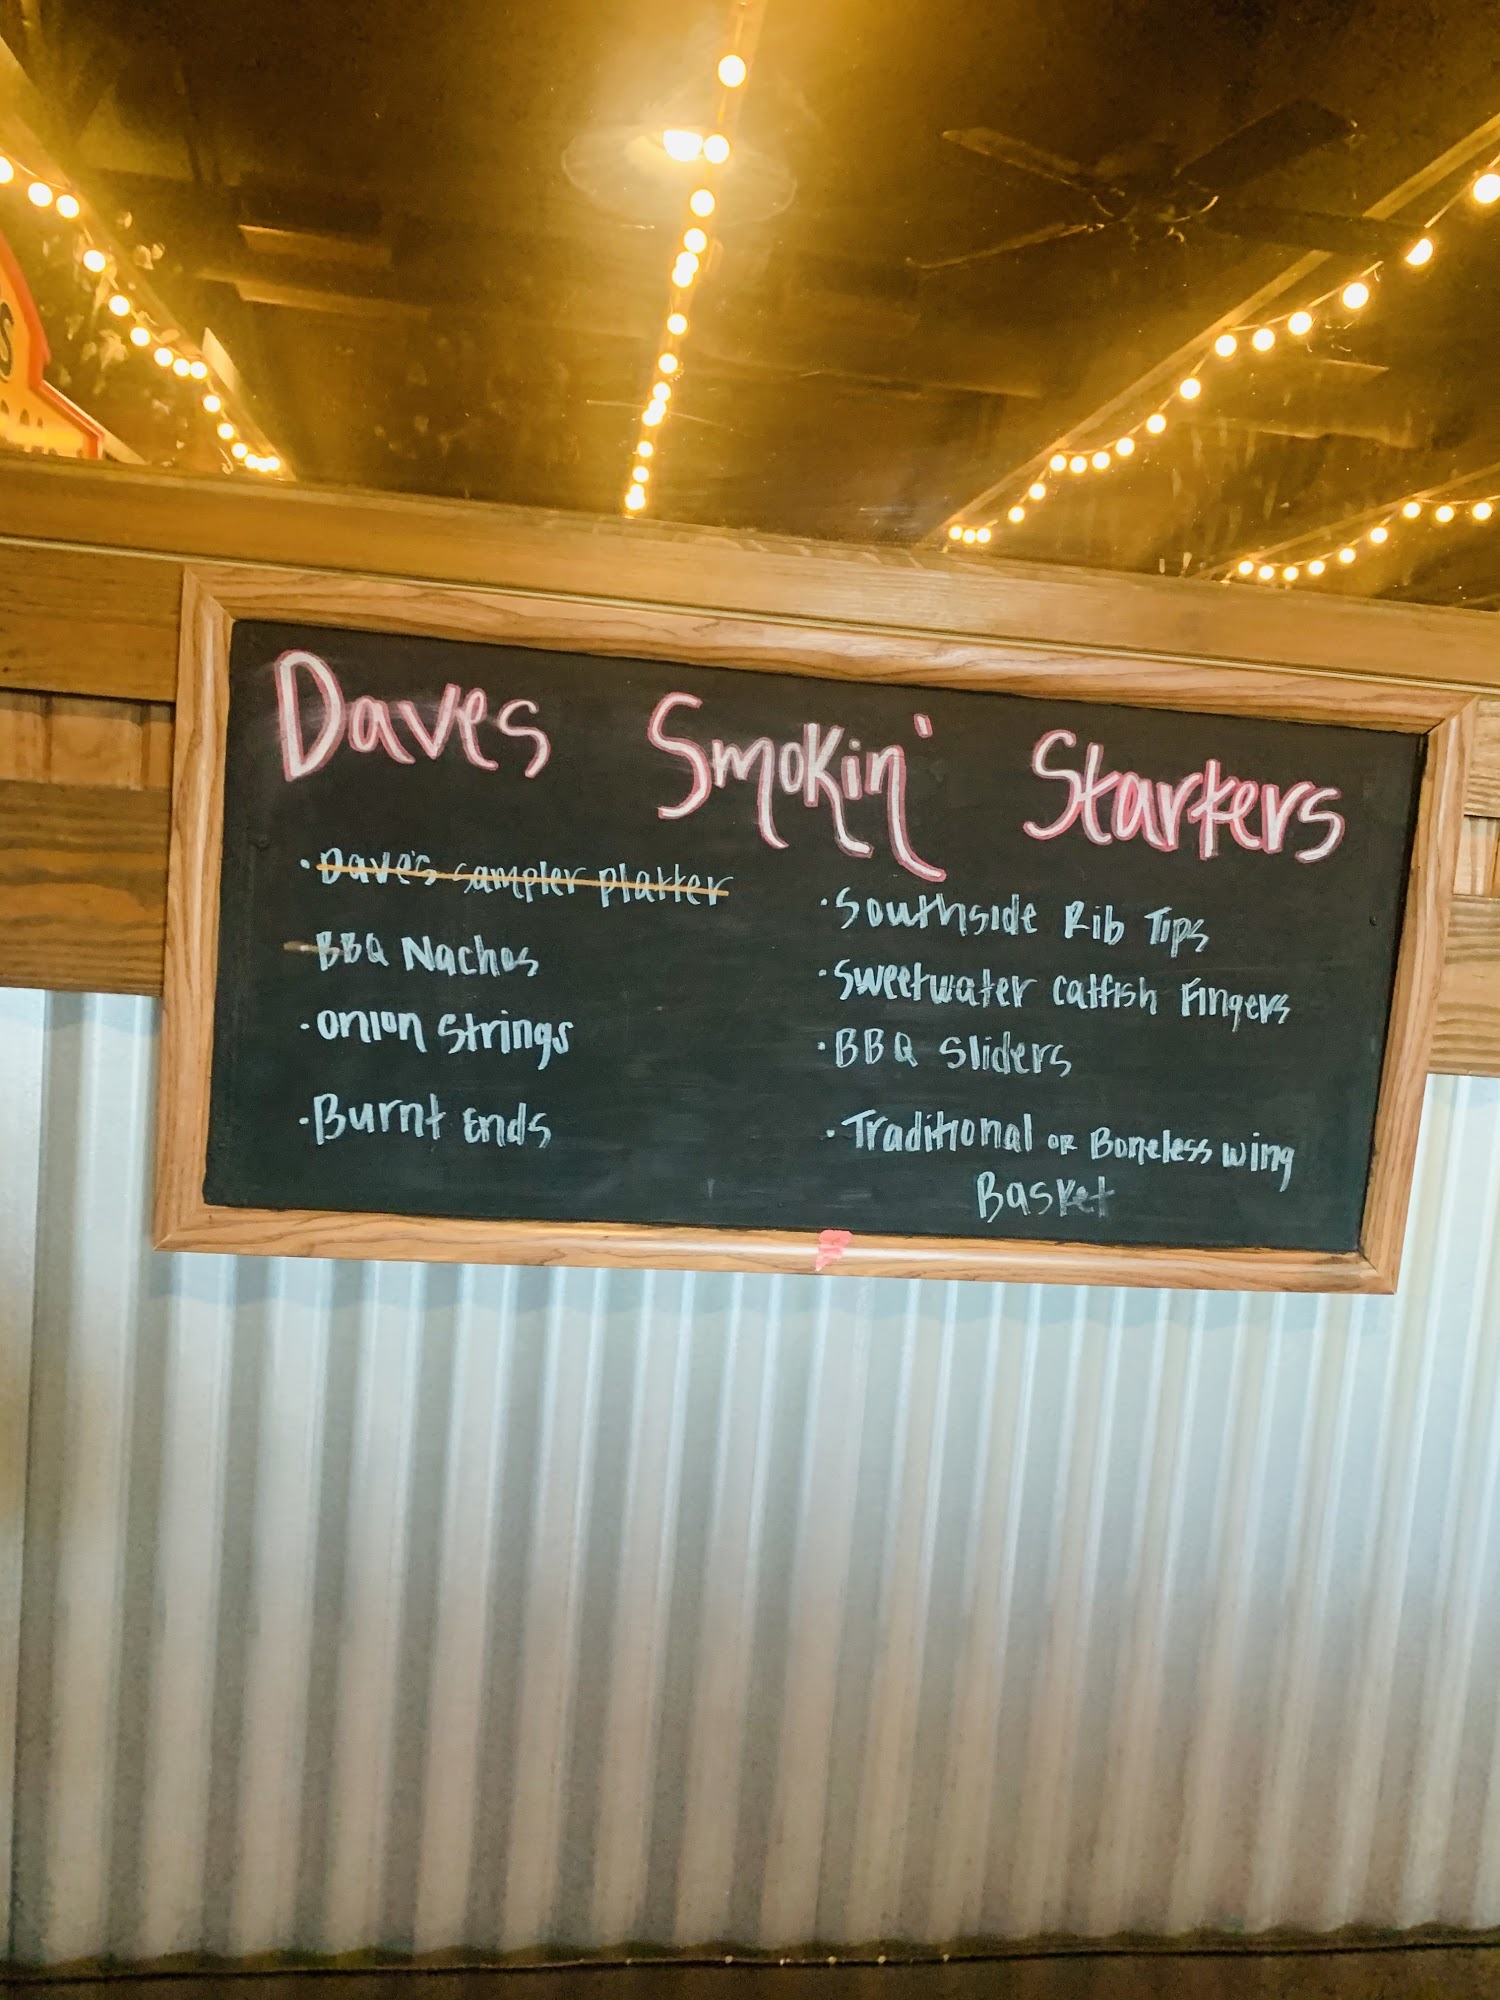 Daves Smokin' Starters
· Dave's Sampler Platter
BBQ Nachos
· Onion Strings
· Burnt Ends
· Southside Rib Tips
· Sweetwater Catfish Fingers
· BBQ Sliders
· Traditional or Boneless wing
Basket